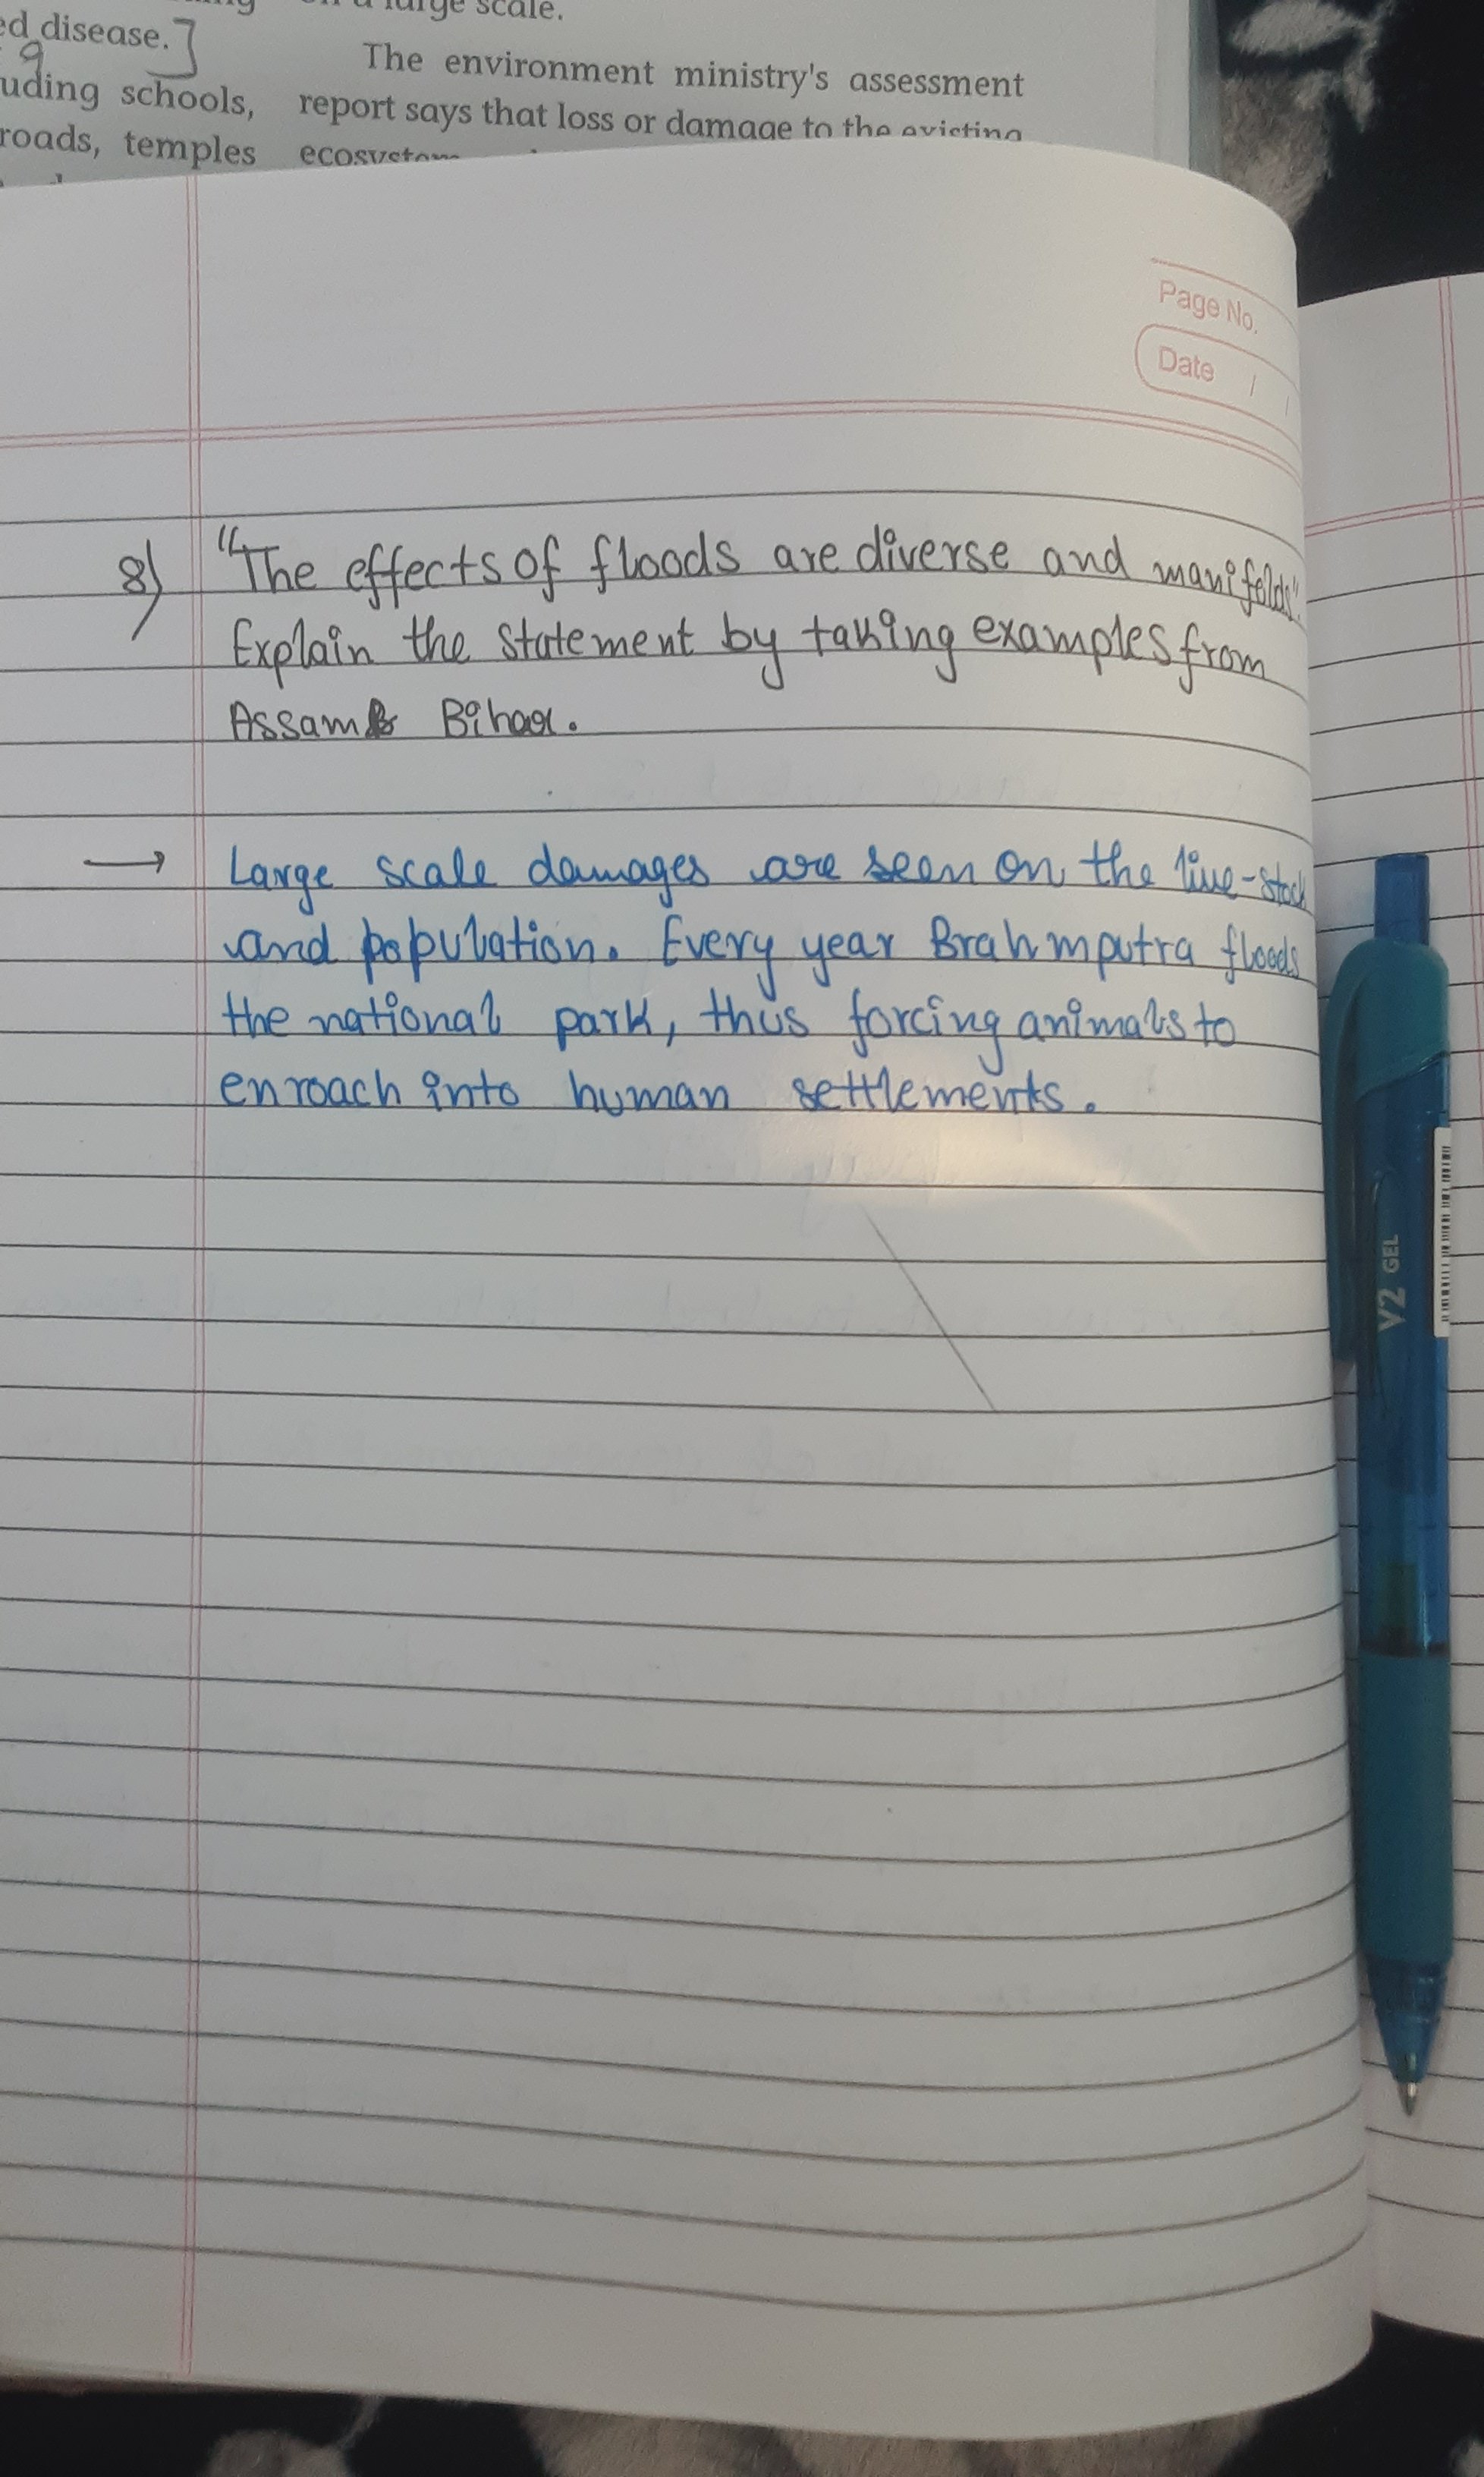 on a large scale.
ed disease.]
9
The environment ministry's assessment
uding schools,
report says that loss or damage to the existing
roads, temples
Page No.
Date / /
8) "The effects of floods are diverse and manifolds".
Explain the statement by taking examples from
Assam & Bihar.
→ Large scale damages are seen on the live-stock
and population. Every year Brahmputra floods
the national park, thus forcing animals to
enroach into human settlements.
V2 GEL